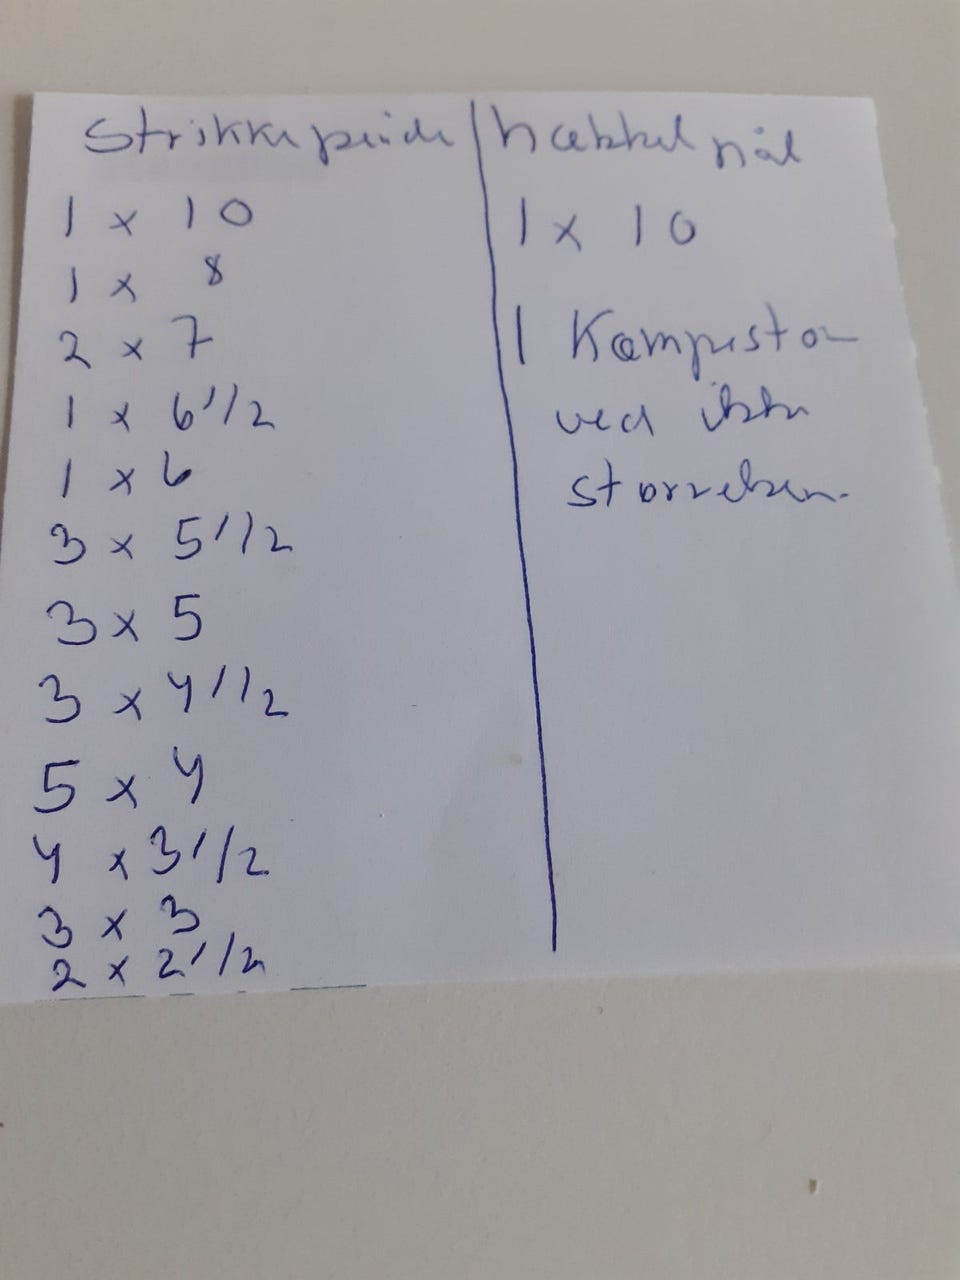 Strikkepinde
1 x 10
1 x 8
2 x 7
1 x 6 1/2
1 x 6
3 x 5 1/2
3 x 5
3 x 4 1/2
5 x 4
4 x 3 1/2
3 x 3
2 x 2 1/2
hæklel nål
1 x 10
1 Kæmpestor
ved ikke
størrelsen.